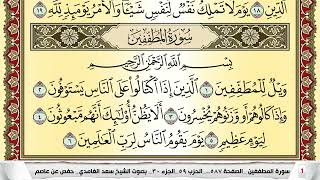 ٱلدِّينِ ١٨ يَوْمَ لَا تَمْلِكُ نَفْسٌ لِّنَفْسٍ شَيْـًٔا وَٱلْأَمْرُ يَوْمَئِذٍ لِّلَّهِ ١٩
سُورَةُ المُطَفِّفِينَ
بِسْمِ ٱللَّهِ ٱلرَّحْمَٰنِ ٱلرَّحِيمِ
وَيْلٌ لِّلْمُطَفِّفِينَ ١ ٱلَّذِينَ إِذَا ٱكْتَالُوا۟ عَلَى ٱلنَّاسِ يَسْتَوْفُونَ ٢
وَإِذَا كَالُوهُمْ أَو وَّزَنُوهُمْ يُخْسِرُونَ ٣ أَلَا يَظُنُّ أُو۟لَٰٓئِكَ أَنَّهُم مَّبْعُوثُونَ ٤
لِيَوْمٍ عَظِيمٍ ٥ يَوْمَ يَقُومُ ٱلنَّاسُ لِرَبِّ ٱلْعَٰلَمِينَ ٦
سورة المطففين . الصفحة ٥٨٧ . الحزب ٥٩ . الجزء ٣٠ . بصوت الشيخ سعد الغامدي . حفص عن عاصم
1